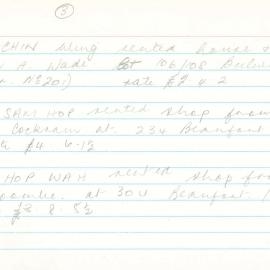 3
CHIN sling rented house
A. Wade Lot 106/108
No 201) rate £2 4 2
SAM HOP rented shop from
Cockram at 234 Beaufort
£4 6-1½
HOP WAH rented shop
at 304 Beaufort
£2 8. 5½